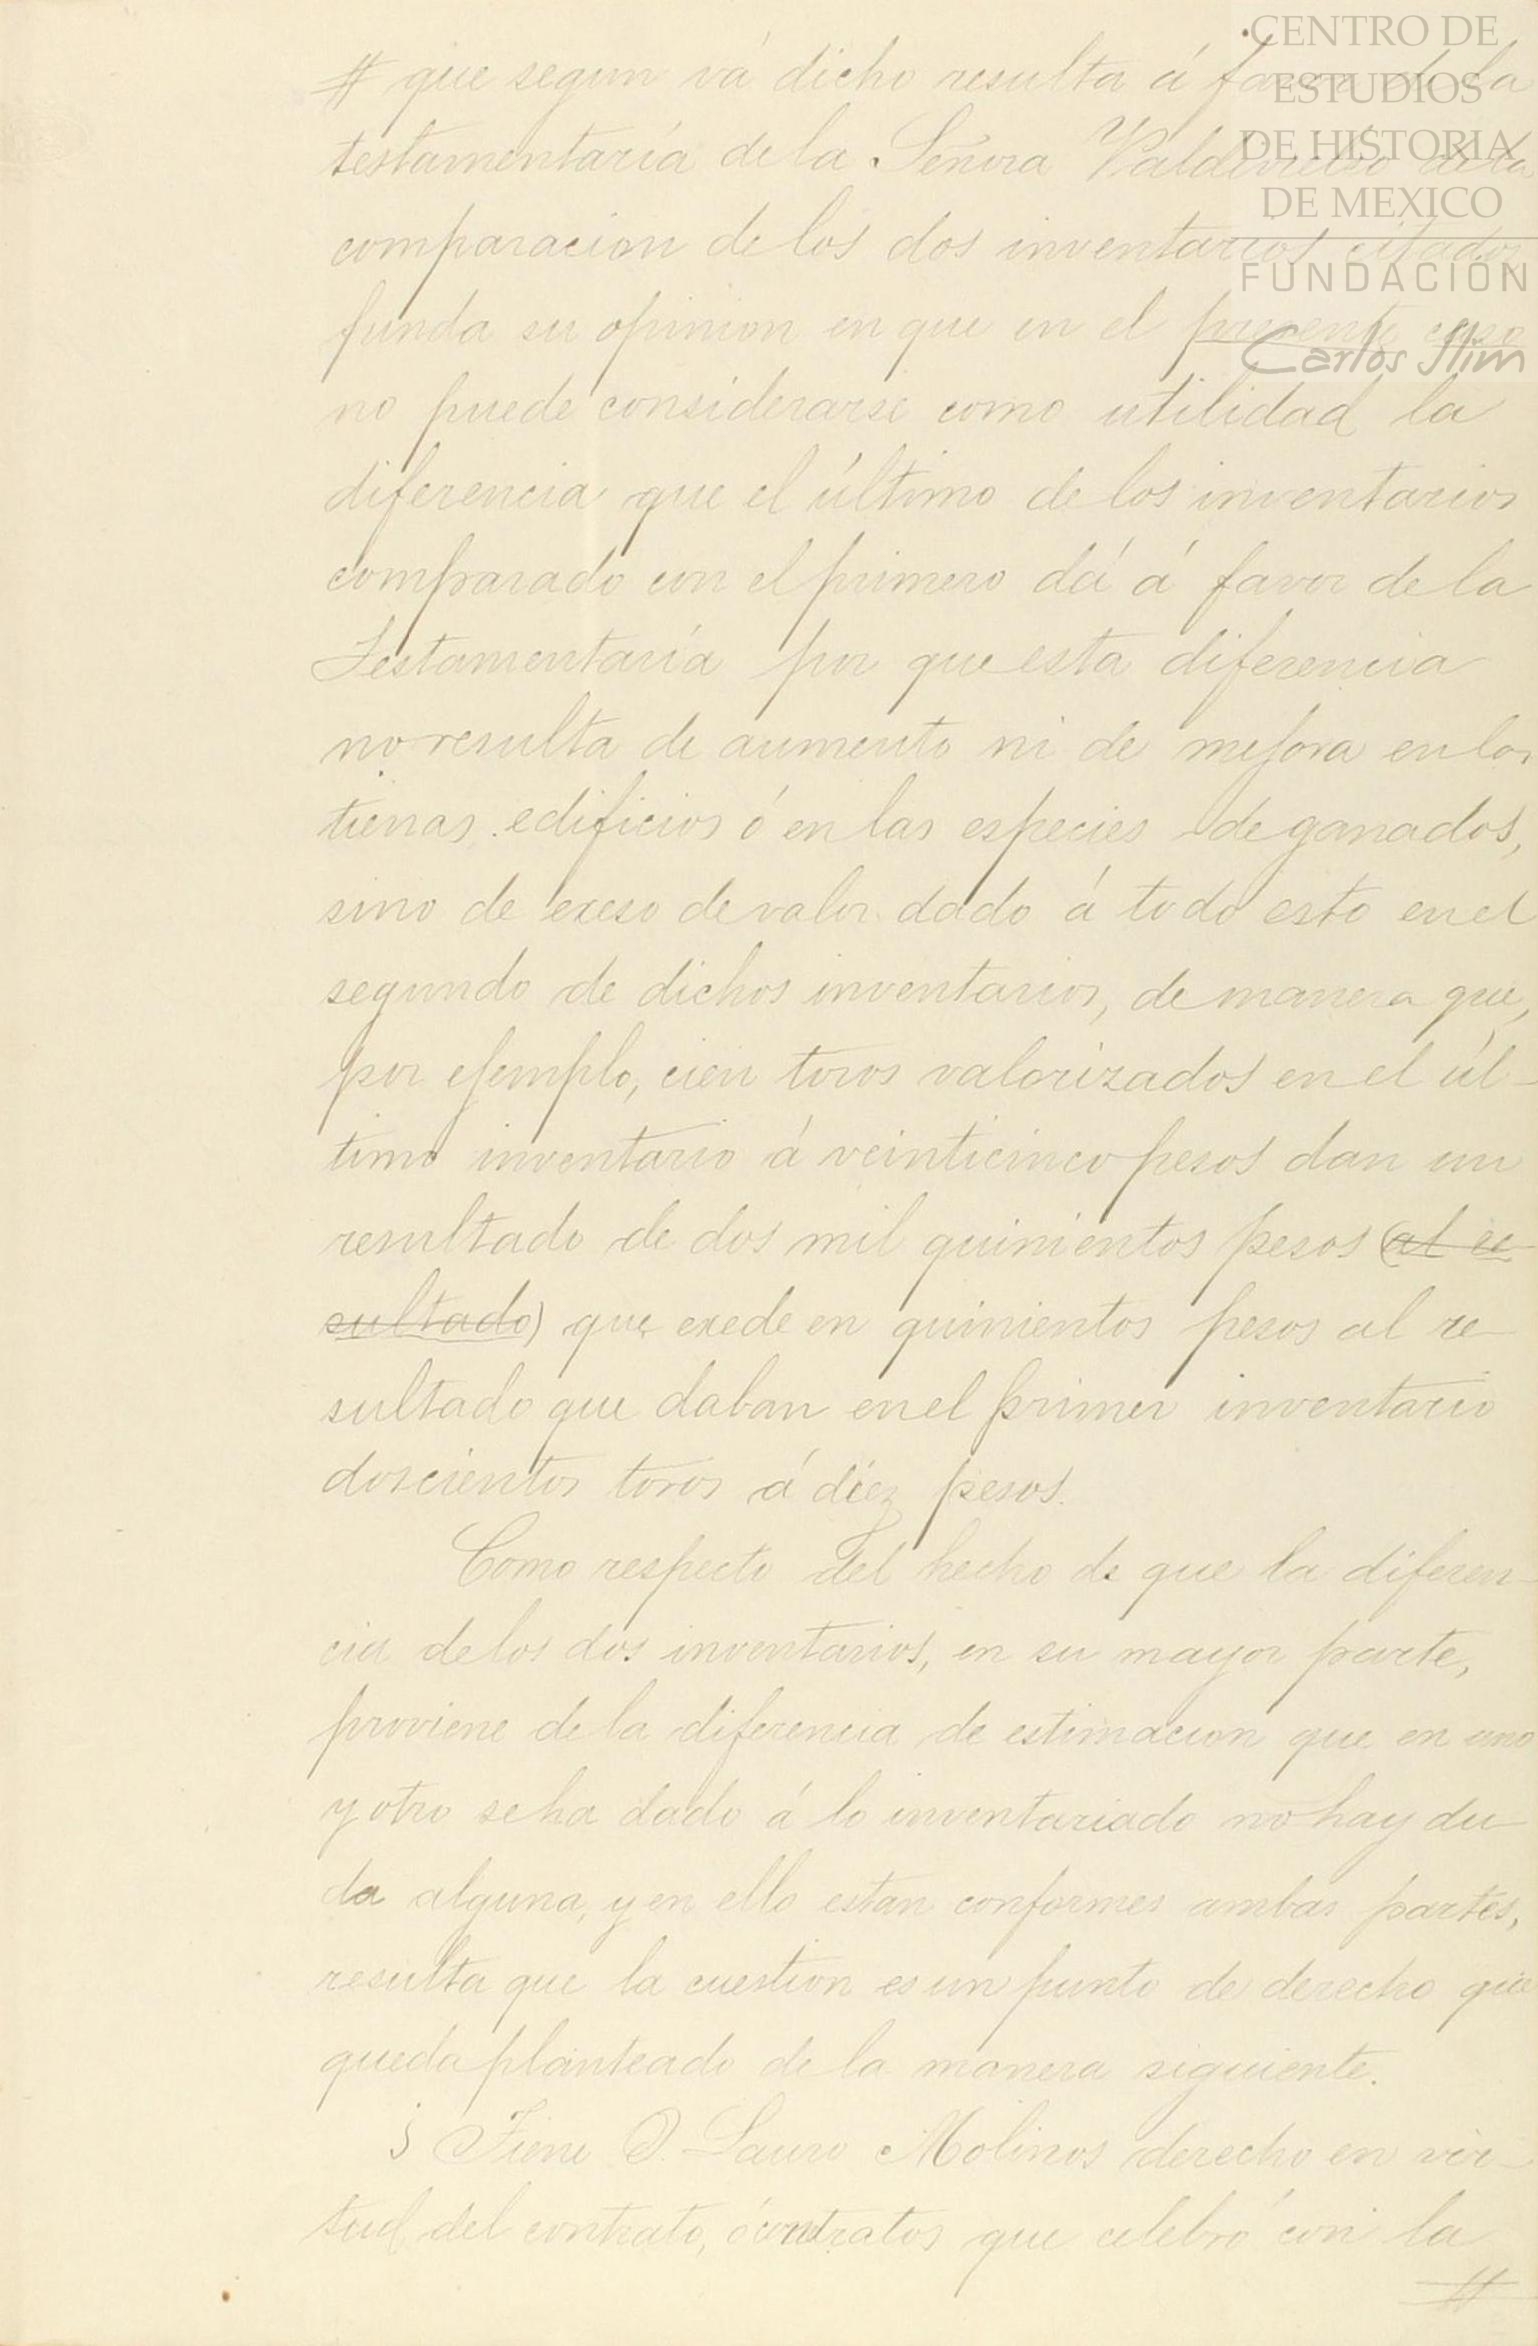 CENTRO DE
ESTUDIOS
DE HISTORIA
DE MEXICO
FUNDACIÓN
Carlos Slim
# que segun vá dicho resulta á favor de la
testamentaría de la Señora Valdivielso de la
comparacion de los dos inventarios citados
funda su opinion en que en el presente caso
no puede considerarse como utilidad la
diferencia que el último de los inventarios
comparado con el primero dá á favor de la
Testamentaría por que esta diferencia
no resulta de aumento ni de mejora en las
tierras, edificios ó en las especies de ganados,
sino de exeso de valor dado á todo esto en el
segundo de dichos inventarios, de manera que,
por ejemplo, cien toros valorizados en el úl-
timo inventario á veinticinco pesos dan un
resultado de dos mil quinientos pesos (al re-
sultado) que exede en quinientos pesos al re-
sultado que daban en el primer inventario
doscientos toros á diez pesos.
Como respecto del hecho de que la diferen-
cia de los dos inventarios, en su mayor parte,
proviene de la diferencia de estimacion que en uno
y otro se ha dado á lo inventariado no hay du-
da alguna, y en ello estan conformes ambas partes,
resulta que la cuestion es un punto de derecho que
queda planteado de la manera siguiente.
¿Tiene D. Lauro Molinos derecho en vir-
tud del contrato, ó contratos que celebró con la
#